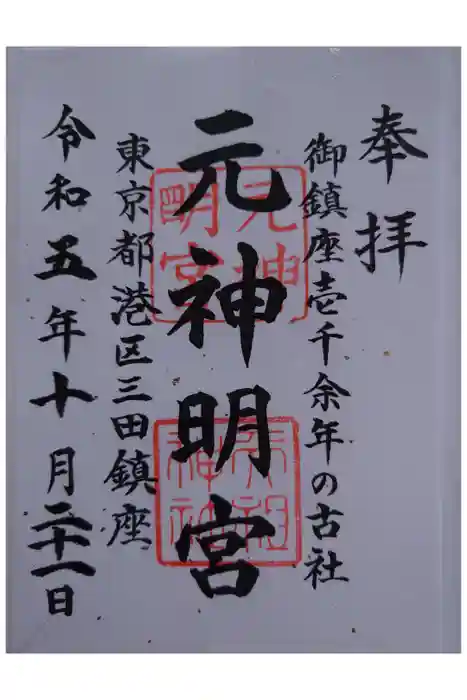 奉拝
御鎮座壱千余年の古社
元神明宮
東京都港区三田鎮座
令和五年十月二十一日
元神明宮